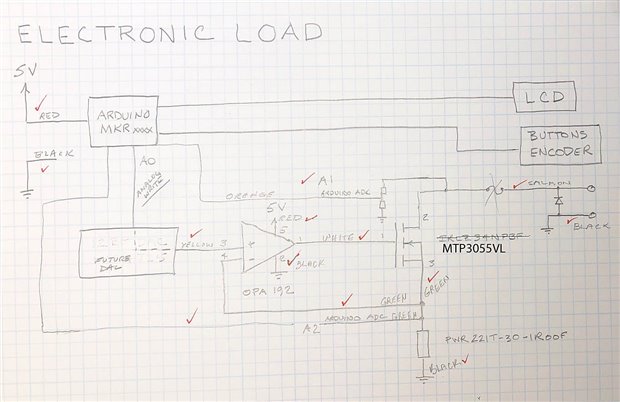 ELECTRONIC LOAD
5V
RED
ARDUINO
MKR xxxx
LCD
BUTTONS
ENCODER
BLACK
A0
ANALOG
WRITE
ORANGE
A1
ARDUINO ADC
SALMON
BLACK
5V
RED
5
2
YELLOW
3
+
4
-
1
WHITE
1
2
BLACK
3
MTP3055VL
FUTURE
DAC
OPA 192
GREEN
GREEN
A2
ARDUINO ADC
GREEN
PWR221T-30-1R00F
BLACK